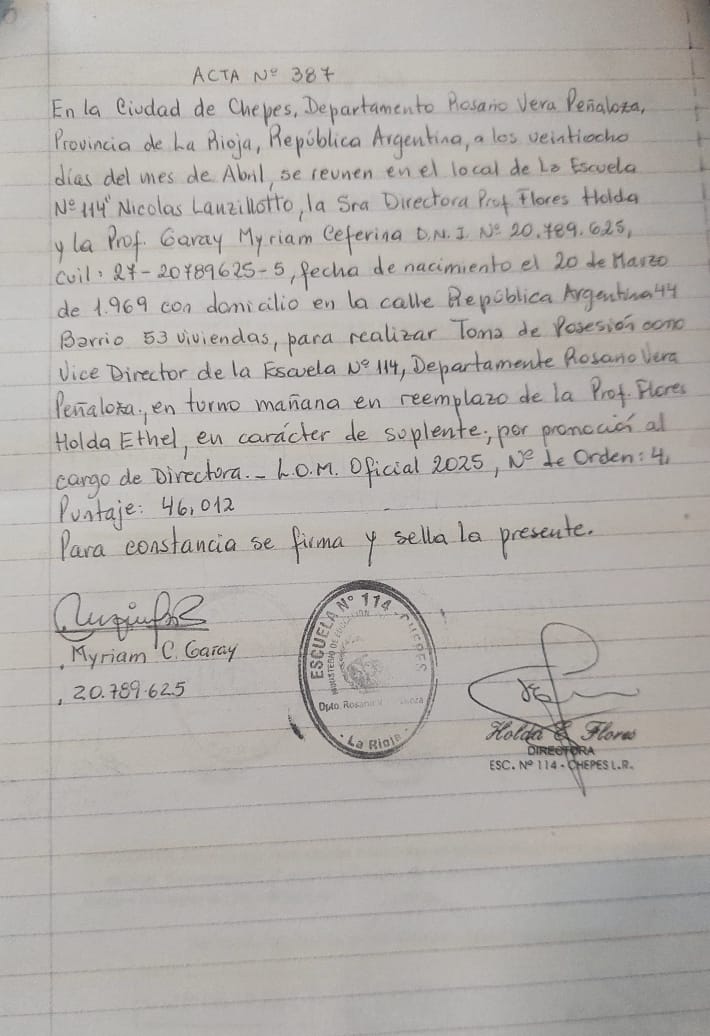 ACTA Nº 387
En la Ciudad de Chepes, Departamento Rosario Vera Peñaloza,
Provincia de La Rioja, República Argentina, a los veintiocho
días del mes de Abril, se reunen en el local de La Escuela
Nº 114 "Nicolas Lanzillotto, la Sra Directora Prof Flores Holda
y la Prof. Garay Myriam Ceferina D.N.I. Nº 20.789.625,
Cuil: 27-20789625-5, fecha de nacimiento el 20 de Marzo
de 1.969 con domicilio en la calle República Argentina 44
Barrio 53 viviendas, para realizar Toma de Posesión como
Vice Director de la Escuela Nº 114, Departamente Rosario Vera
Peñaloza, en turno mañana en reemplazo de la Prof. Flores
Holda Ethel, en carácter de suplente, por promoción al
cargo de Directora._ L.O.M. Oficial 2025, Nº de Orden: 4,
Puntaje: 46,012
Para constancia se firma y sella la presente.
Myriam C. Garay
20.789.625
ESCUELA Nº 114 - CHEPES
MINISTERIO DE EDUCACION
Dpto Rosario V
La Rioja
Holda E Flores
DIRECTORA
ESC. Nº 114 - CHEPES L.R.